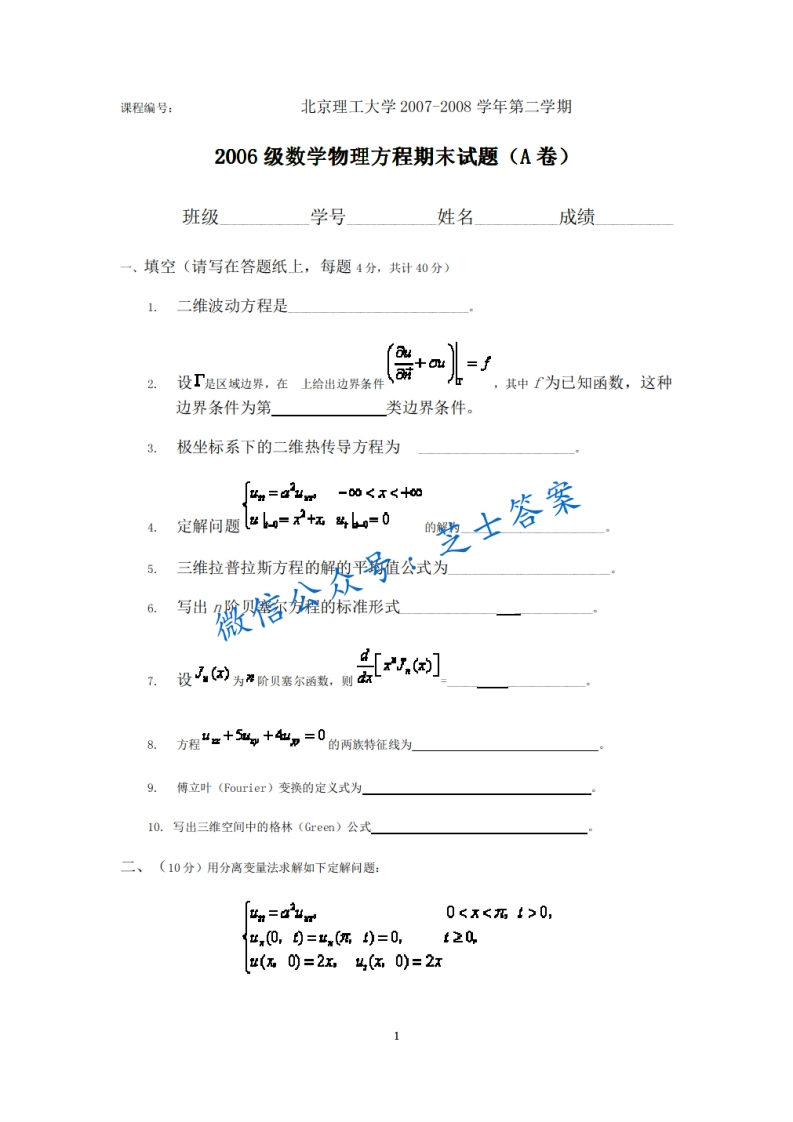 课程编号： 北京理工大学 2007-2008 学年第二学期
2006 级数学物理方程期末试题（A 卷）
班级__________学号__________姓名__________成绩__________
一、填空（请写在答题纸上，每题 4 分，共计 40 分）
1. 二维波动方程是____________________。
2. 设Γ是区域边界，在 上给出边界条件 (∂u/∂n⃗ + σu)|_Γ = f ，其中 f 为已知函数，这种
边界条件为第____________类边界条件。
3. 极坐标系下的二维热传导方程为 ____________________。
4. 定解问题 { u_tt = a²u_xx, -∞ < x < +∞
u|_{t=0} = x²+x, u_t|_{t=0} = 0 的解为____________________。
5. 三维拉普拉斯方程的解的平均值公式为____________________。
6. 写出 n 阶贝塞尔方程的标准形式____________________。
7. 设 J_n(x) 为 n 阶贝塞尔函数，则 d/dx [x^n J_n(x)] =____________________。
8. 方程 u_xx + 5u_xy + 4u_yy = 0 的两族特征线为____________________。
9. 傅立叶（Fourier）变换的定义式为____________________。
10. 写出三维空间中的格林（Green）公式____________________。
二、（10 分）用分离变量法求解如下定解问题：
{ u_tt = a²u_xx, 0 < x < π, t > 0,
u_x(0, t) = u_x(π, t) = 0, t ≥ 0,
u(x, 0) = 2x, u_t(x, 0) = 2x
1
微信公众号：芝士答案